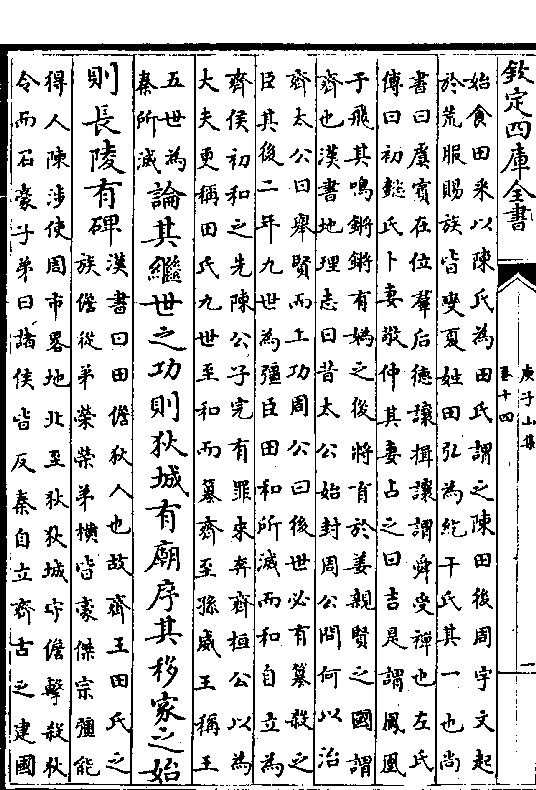 欽定四庫全書
庚子山集
卷十四
二
始食田采以陳氏為田氏謂之陳田後周宇文起
於荒服賜族皆變夏姓田弘為紇干氏其一也尚
書曰虞賓在位羣后德讓揖讓謂舜受禪也左氏
傳曰初懿氏卜妻敬仲其妻占之曰吉是謂鳳凰
于飛其鳴鏘鏘有媯之後將育於姜親賢之國謂
齊也漢書地理志曰昔太公始封周公問何以治
齊太公曰舉賢而上功周公曰後世必有篡殺之
臣其後二年九世為彊臣田和所滅而和自立為
齊侯初和之先陳公子完有罪來奔齊桓公以為
大夫更稱田氏九世至和而篡齊至孫威王稱王
五世為
秦所滅
論其繼世之功則狄城有廟序其移家之始
則長陵有碑
漢書曰田儋狄人也故齊王田氏之
族儋從弟榮榮弟橫皆豪傑宗彊能
得人陳涉使周市畧地北至狄狄城守儋擊殺狄
令而石豪子弟曰諸侯皆反秦自立齊古之建國